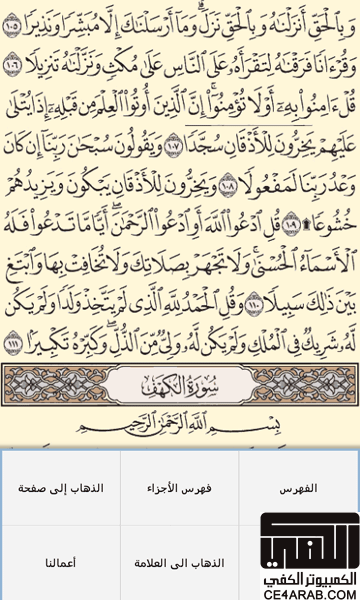 وَبِٱلْحَقِّ أَنزَلْنَٰهُ وَبِٱلْحَقِّ نَزَلَ ۗ وَمَآ أَرْسَلْنَٰكَ إِلَّا مُبَشِّرًا وَنَذِيرًا ١٠٥
وَقُرْءَانًا فَرَقْنَٰهُ لِتَقْرَأَهُۥ عَلَى ٱلنَّاسِ عَلَىٰ مُكْثٍ وَنَزَّلْنَٰهُ تَنزِيلًا ١٠٦
قُلْ ءَامِنُوا۟ بِهِۦٓ أَوْ لَا تُؤْمِنُوٓا۟ ۚ إِنَّ ٱلَّذِينَ أُوتُوا۟ ٱلْعِلْمَ مِن قَبْلِهِۦٓ إِذَا يُتْلَىٰ
عَلَيْهِمْ يَخِرُّونَ لِلْأَذْقَانِ سُجَّدًا ١٠٧ وَيَقُولُونَ سُبْحَٰنَ رَبِّنَآ إِن كَانَ
وَعْدُ رَبِّنَا لَمَفْعُولًا ١٠٨ وَيَخِرُّونَ لِلْأَذْقَانِ يَبْكُونَ وَيَزِيدُهُمْ
خُشُوعًا ۩ ١٠٩ قُلِ ٱدْعُوا۟ ٱللَّهَ أَوِ ٱدْعُوا۟ ٱلرَّحْمَٰنَ ۖ أَيًّا مَّا تَدْعُوا۟ فَلَهُ
ٱلْأَسْمَآءُ ٱلْحُسْنَىٰ ۚ وَلَا تَجْهَرْ بِصَلَاتِكَ وَلَا تُخَافِتْ بِهَا وَٱبْتَغِ
بَيْنَ ذَٰلِكَ سَبِيلًا ١١٠ وَقُلِ ٱلْحَمْدُ لِلَّهِ ٱلَّذِى لَمْ يَتَّخِذْ وَلَدًا وَلَمْ يَكُن
لَّهُۥ شَرِيكٌ فِى ٱلْمُلْكِ وَلَمْ يَكُن لَّهُۥ وَلِىٌّ مِّنَ ٱلذُّلِّ ۖ وَكَبِّرْهُ تَكْبِيرًۢا ١١١
سُورَةُ الكَهْفِ
بِسْمِ ٱللَّهِ ٱلرَّحْمَٰنِ ٱلرَّحِيمِ
الفهرس
فهرس الأجزاء
الذهاب إلى صفحة
الذهاب الى العلامة
أعمالنا
الكمبيوتر الكفي
CE4ARAB.COM